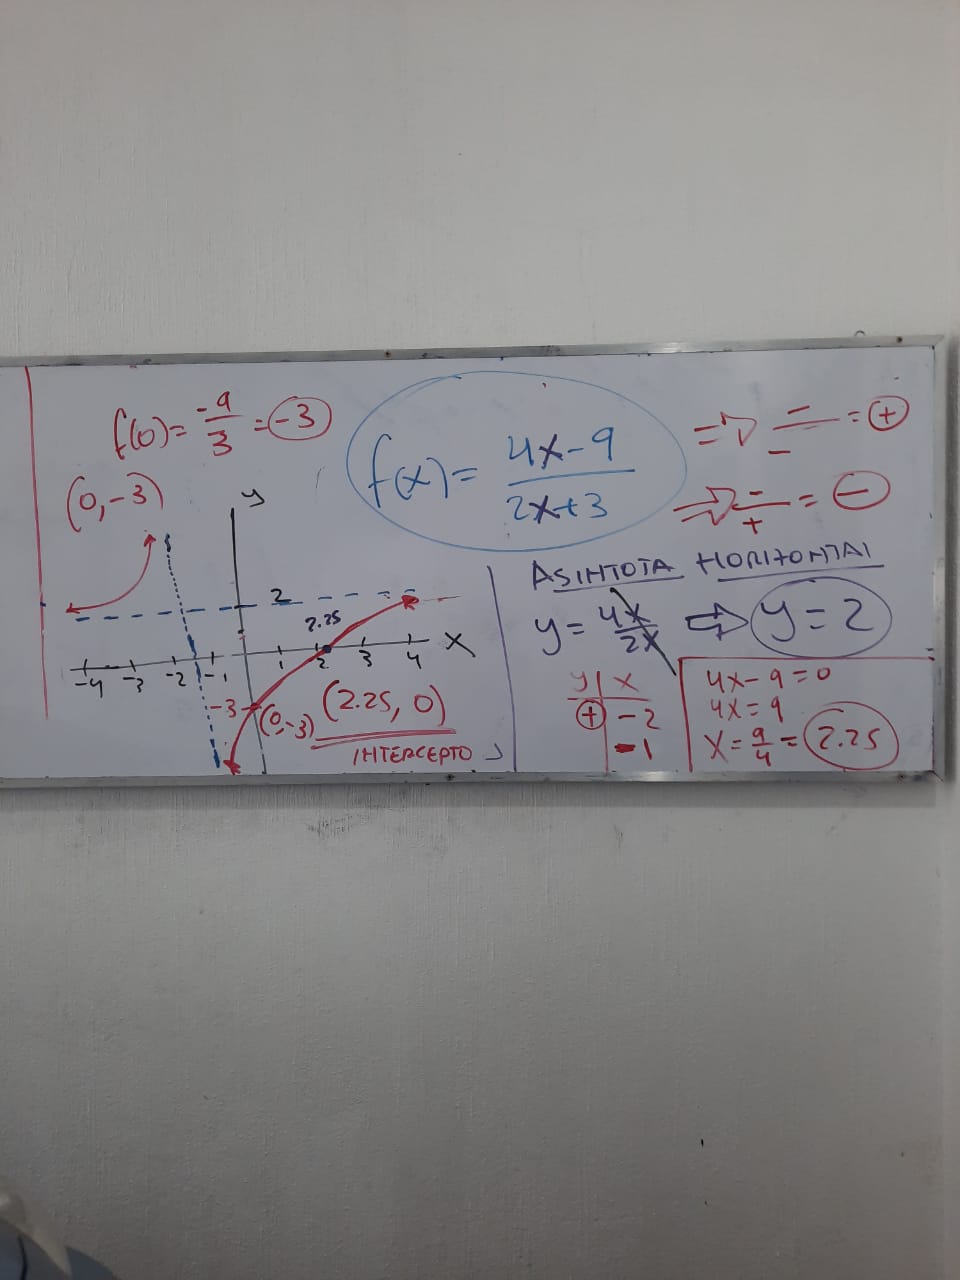 f(0) = -9/3 = -3
(0, -3)
f(x) = 4x-9 / 2x+3
⇒ - / - = +
⇒ - / + = -
y
2
2.25
x
-4 -3 -2 -1 1 2 3 4
-3
(0, -3)
(2.25, 0)
INTERCEPTO
ASINTOTA HORIZONTAL
y = 4x/2x ⇒ y = 2
y | x
+ | -2
- | -1
4x - 9 = 0
4x = 9
x = 9/4 = 2.25